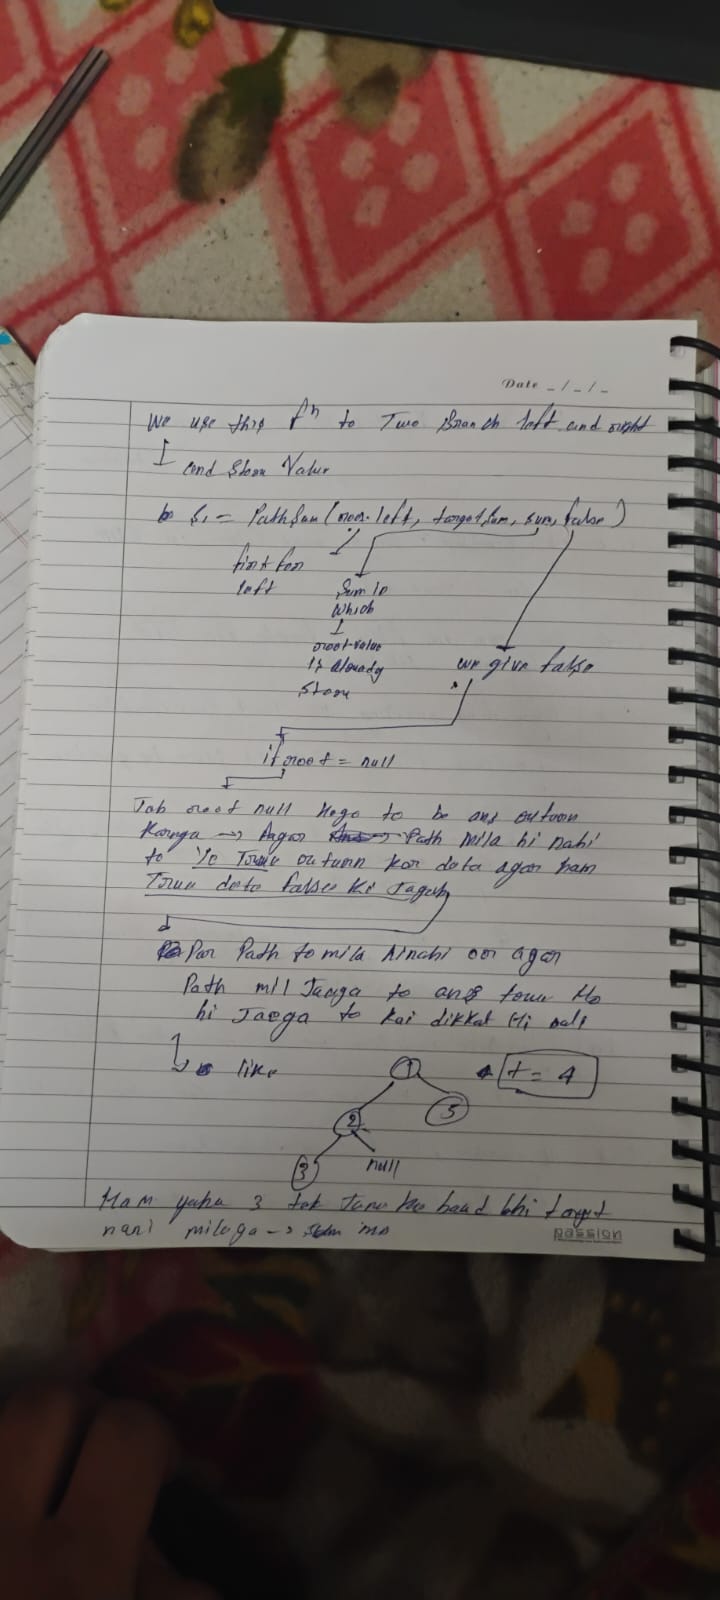 Date _/_/_
We use this fn to Two Branch left and right
and Store Value
S1 = PathSum (root.left, targetSum, sum, false)
first for
left
Sum in
which
root value
is already
Store
we give false
if root = null
Jab root null Hogo to be ans return
Karega → Aagar Path mila hi nahi
to Ye True return kar deta agar ham
True deta false ki Jagah
Par Path to mila hi nahi or agar
Path mil Jaega to ans true Ho
hi Jaega to koi dikkat Hi nahi
like
1
t = 4
2
5
3
null
Ham yaha 3 tak Jane ke baad bhi target
nahi milega → Sum me
passion